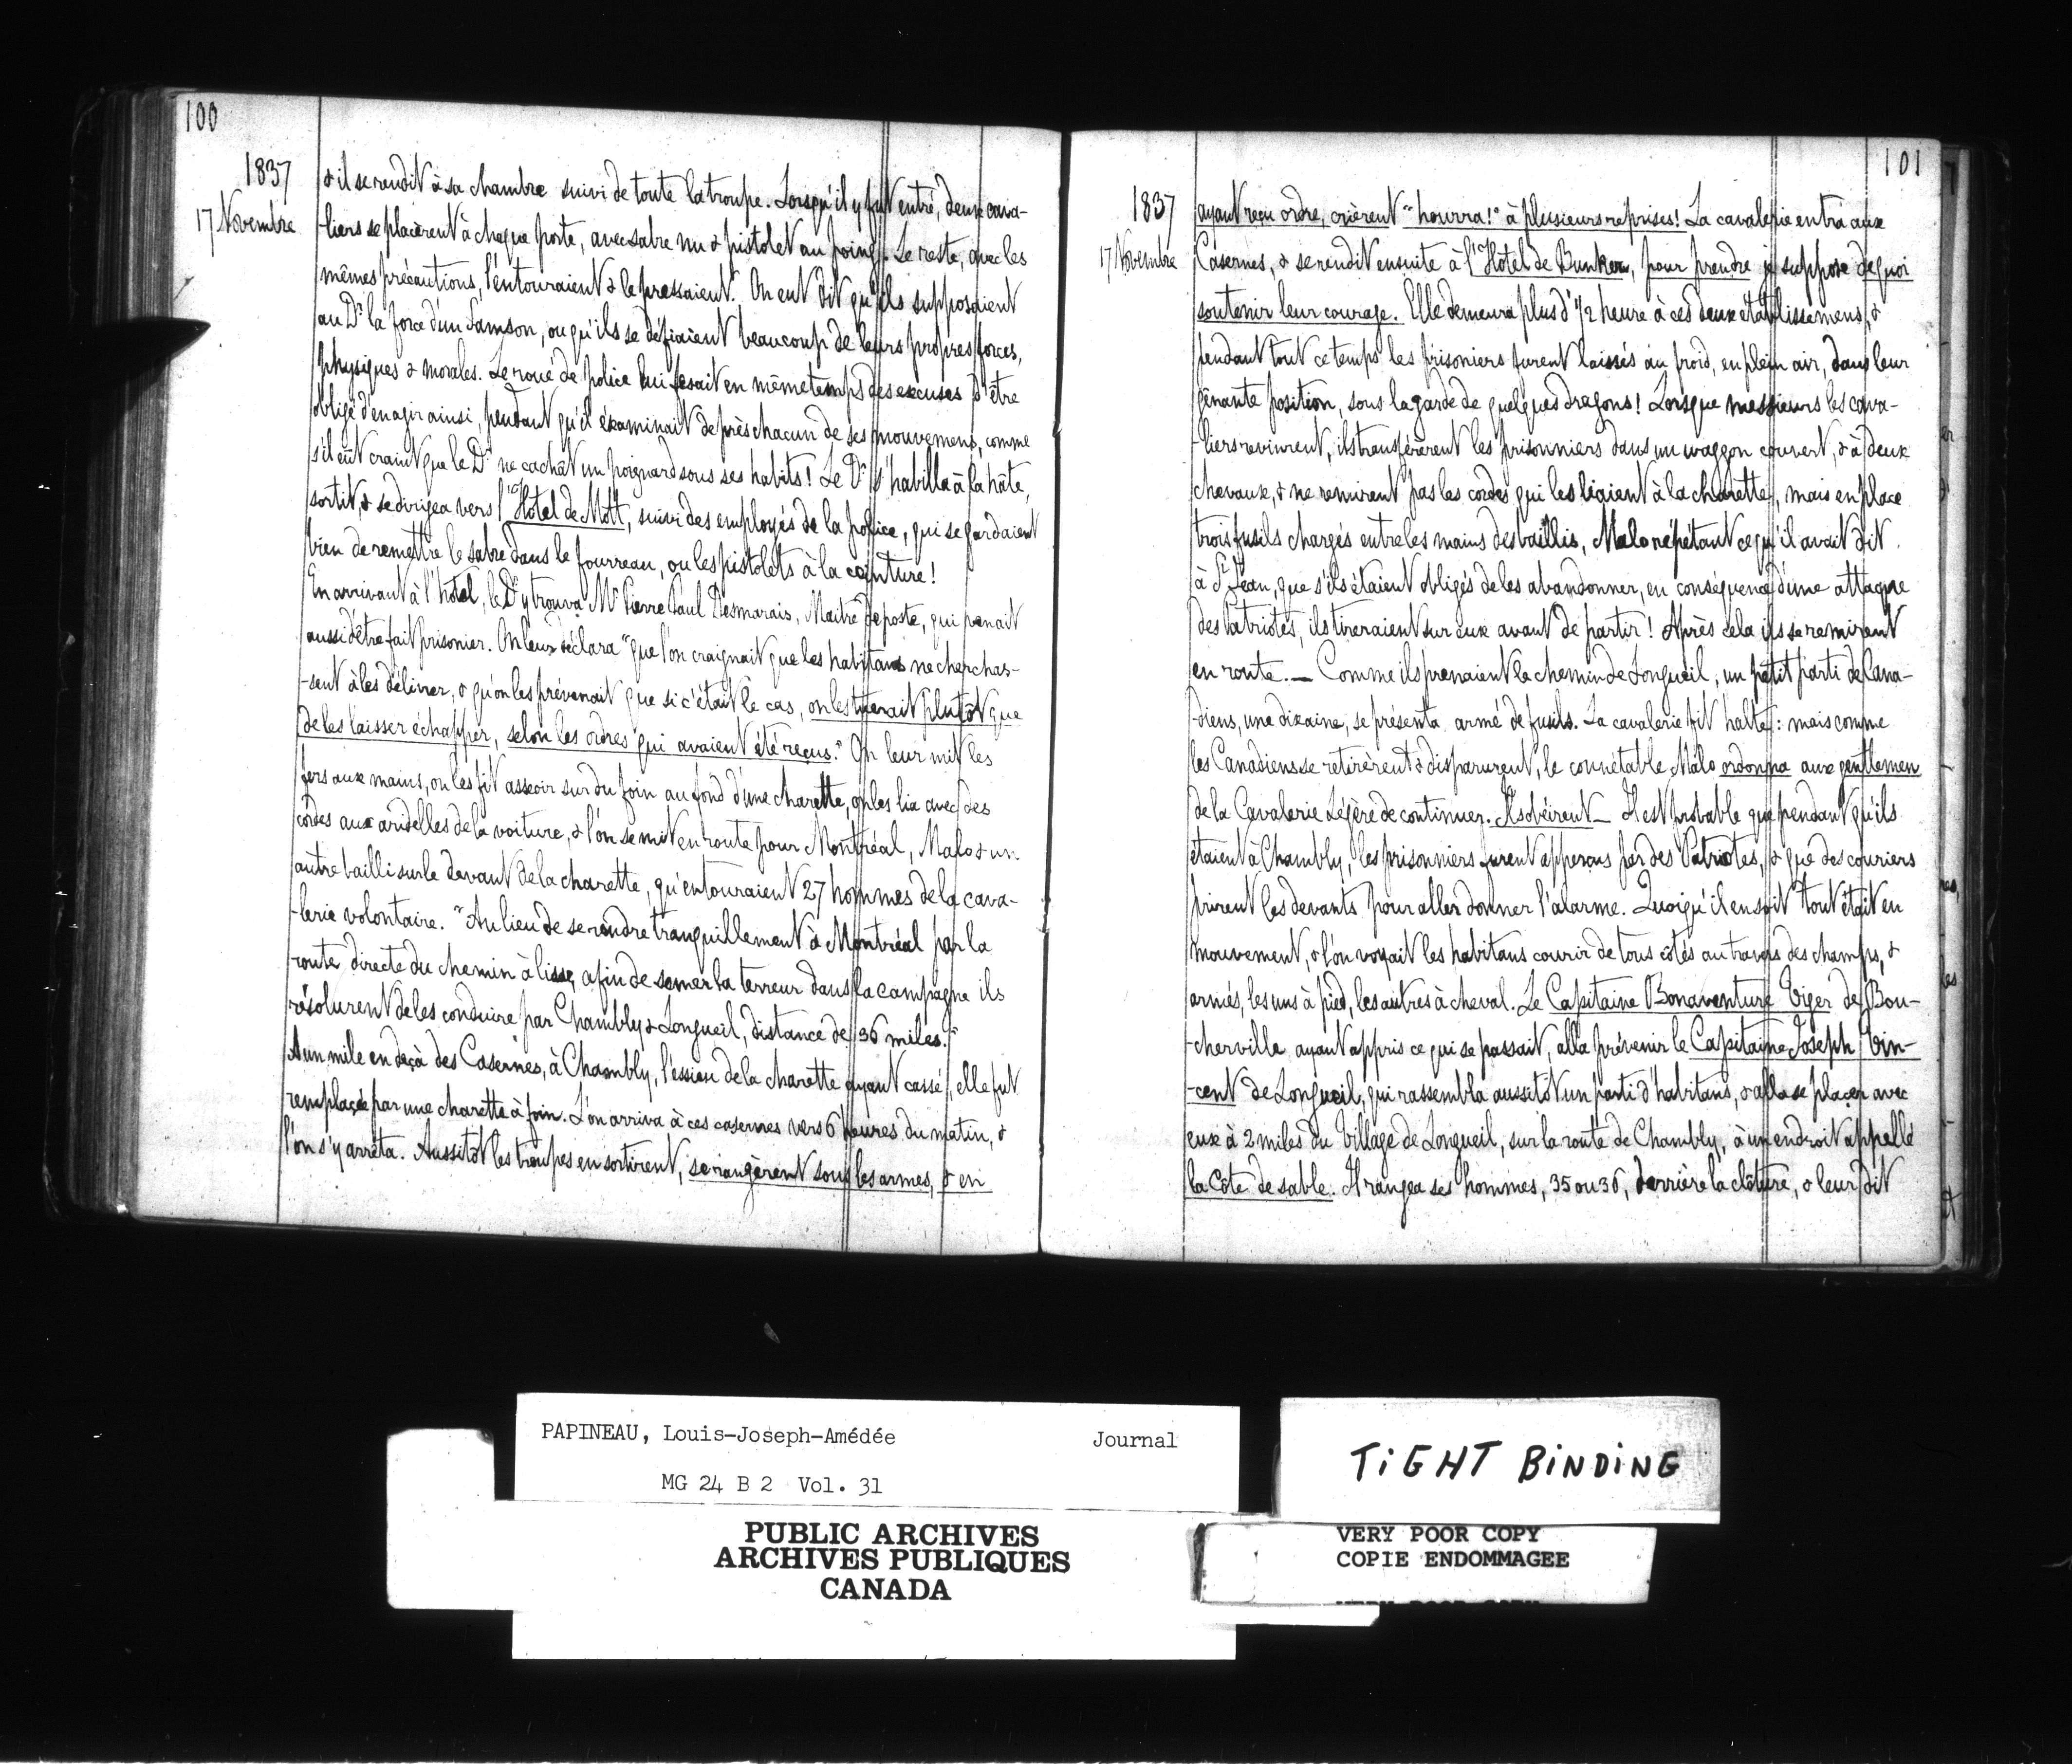 100
1837
17 Novembre
& il se rendit à sa chambre suivi de toute la troupe. Lorsqu'il y fut entré, deux cava-
-liers se placèrent à chaque porte, avec sabre nu & pistolet au poing. Le reste, avec les
mêmes précautions, l'entouraient & le pressaient. On eut dit qu'ils supposaient
au Dr la force d'un Samson, ou qu'ils se défiaient beaucoup de leurs propres forces,
physiques & morales. Le roué de police lui fesait en même temps des excuses d'être
obligé d'en agir ainsi, pendant qu'il examinait de près chacun de ses mouvemens, comme
s'il eût craint que le Dr ne cachât un poignard sous ses habits! Le Dr s'habilla à la hâte,
sortit, & se dirigea vers l'Hôtel de Mott, suivi des employés de la police, qui se gardaient
bien de remettre le sabre dans le fourreau, ou les pistolets à la ceinture!
En arrivant à l'hôtel, le Dr y trouva Mr Pierre Paul Desmarais, Maitre de poste, qui venait
aussi d'être fait prisonier. On leur déclara "que l'on craignait que les habitans ne cherchas-
-sent à les délivrer, & qu'on les prévenait que si c'était le cas, on les tuerait plutôt que
de les laisser échapper, selon les ordres qui avaient été reçus." On leur mit les
fers aux mains, on les fit asseoir sur du foin au fond d'une charette, on les lia avec des
cordes aux aridelles de la voiture, & l'on se mit en route pour Montréal, Malo & un
autre bailli sur le devant de la charette, qu'entouraient 27 hommes de la cava-
-lerie volontaire. "Au lieu de se rendre tranquillement à Montréal par la
route directe du chemin à lisse, afin de semer la terreur dans la campagne ils
résolurent de les conduire par Chambly & Longueil, distance de 36 miles."
A un mile en deçà des Casernes, à Chambly, l'essieu de la charette ayant cassé, elle fut
remplaçée par une charette à foin. L'on arriva à ces casernes vers 6 heures du matin, &
l'on s'y arrêta. Aussitôt les troupes en sortirent, se rangèrent sous les armes, & en
101
1837
17 Novembre
ayant reçu ordre, crièrent "hourra!" à plusieurs reprises! La cavalerie entra aux
Casernes, & se rendit ensuite à l'Hôtel de Bunker, pour prendre je suppose de quoi
soutenir leur courage. Elle demeura plus d'1/2 heure à ces deux établissemens, &
pendant tout ce temps les prisoniers furent laissés au froid, en plein air, dans leur
gênante position, sous la garde de quelques dragons! Lorsque messieurs les cava-
-liers revinrent, ils transférèrent les prisonniers dans un waggon couvert, & à deux
chevaux, & ne remirent pas les cordes qui les liaient à la charette, mais en place
trois fusils chargés entre les mains des baillis, Malo répétant ce qu'il avait dit
à St Jean, que s'ils étaient obligés de les abandonner, en conséquence d'une attaque
des Patriotes, ils tireraient sur eux avant de partir! Après cela ils se remirent
en route. — Comme ils prenaient le chemin de Longueil, un petit parti de Cana-
-diens, une dizaine, se présenta armé de fusils. La cavalerie fit halte: mais comme
les Canadiens se retirèrent & disparurent, le connétable Malo ordonna aux gentlemen
de la Cavalerie Légère de continuer. Ils obéirent — Il est probable que pendant qu'ils
étaient à Chambly, les prisonniers furent apperçus par des Patriotes, & que des couriers
prirent les devants pour aller donner l'alarme. Quoiqu'il en soit tout était en
mouvement, & l'on voyait les habitans courir de tous côtés au travers des champs, &
armés, les uns à pied, les autres à cheval. Le Capitaine Bonaventure Viger de Bou-
-cherville ayant appris ce qui se passait, alla prévenir le Capitaine Joseph Vin-
-cent de Longueil, qui rassembla aussitôt un parti d'habitans, & alla se placer avec
eux à 2 miles du Village de Longueil, sur la route de Chambly, à un endroit appellé
la Côte de sable. Il rangea ses hommes, 35 ou 36, derrière la clôture, & leur dit
PAPINEAU, Louis-Joseph-Amédée Journal
MG 24 B 2 Vol. 31
PUBLIC ARCHIVES
ARCHIVES PUBLIQUES
CANADA
TIGHT BINDING
VERY POOR COPY
COPIE ENDOMMAGEE